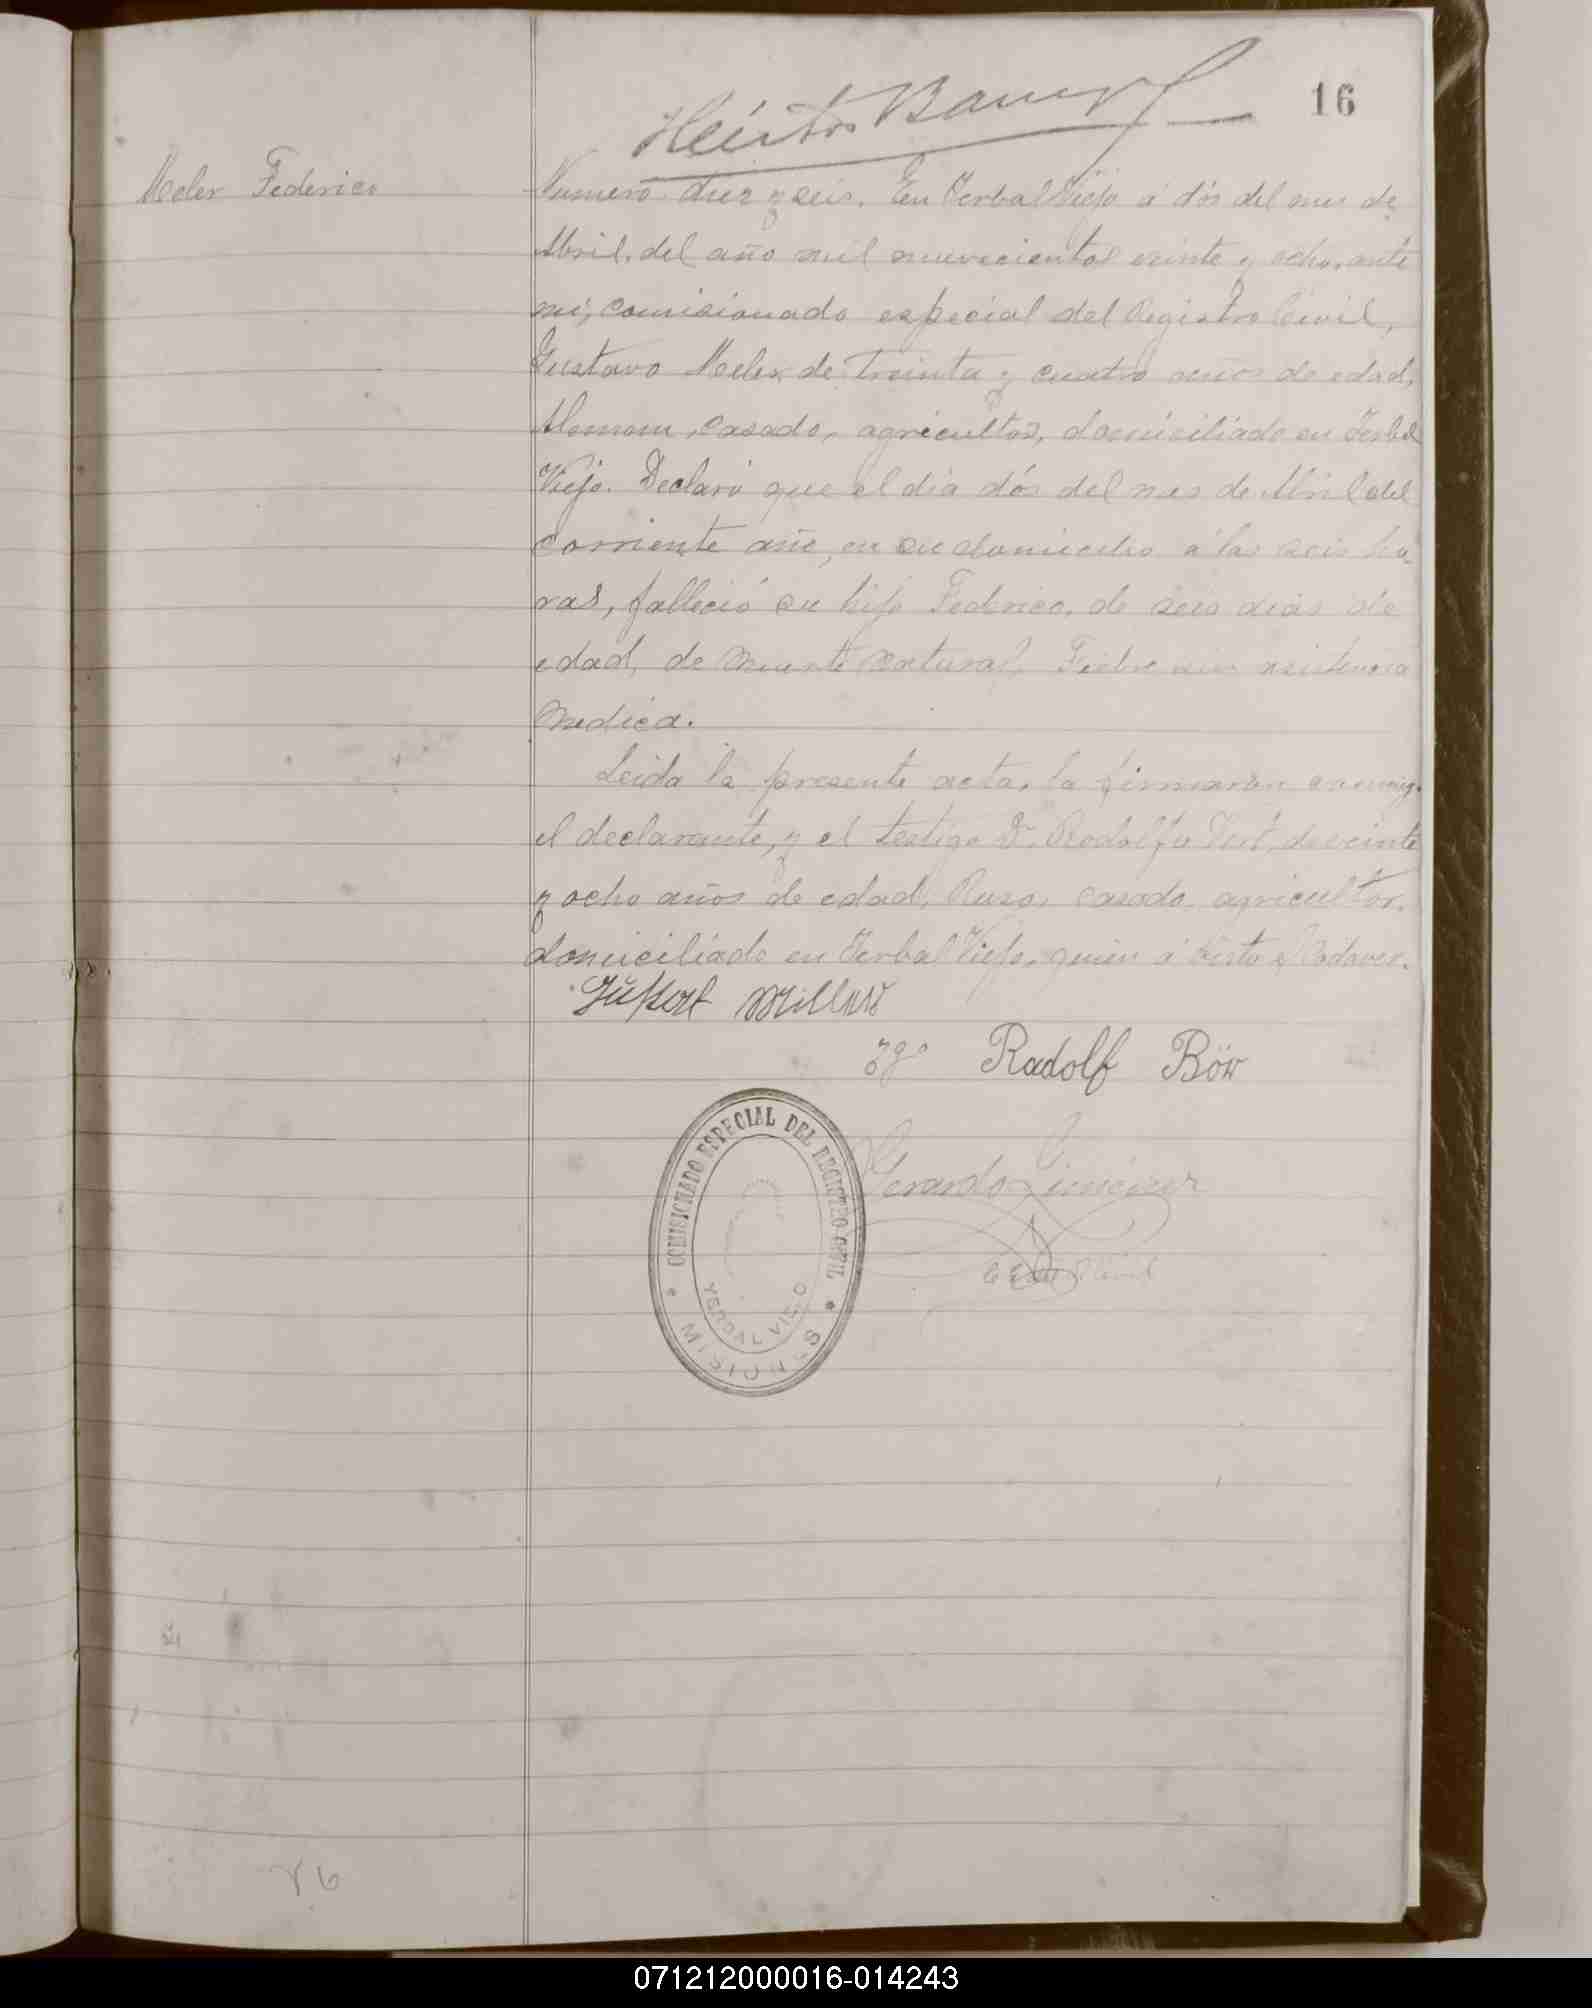 16
Héctor
Meler Federico
Numero diez y seis. En Yerbal Viejo á dós del mes de
Abril, del año mil nuevecientos veinte y ocho, ante
mi, comisionado especial del Registro Civil,
Gustavo Meler de treinta y cuatro años de edad,
Aleman, casado, agricultor, domiciliado en Yerbal
Viejo. Declaró que el día dós del mes de Abril del
corriente año, en su domicilio á las seis ho
ras, falleció su hijo Federico, de seis dias de
edad, de muerte natural, Fiebre sin asistencia
medica.
Leida la presente acta, la firmaron conmigo
el declarante, y el testigo Dn. Rodolfo de veinte
y ocho años de edad, Ruso, casado, agricultor,
domiciliado en Yerbal Viejo, quien á visto el Cadaver.
Radolf Böw
Gerardo Gimenez
COMISIONADO ESPECIAL DEL REGISTRO CIVIL
YERBAL VIEJO
MISIONES
071212000016-014243